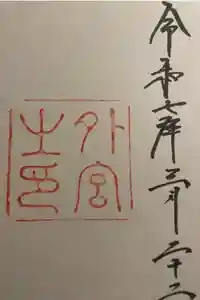 令和七年三月二十
外宮
之印